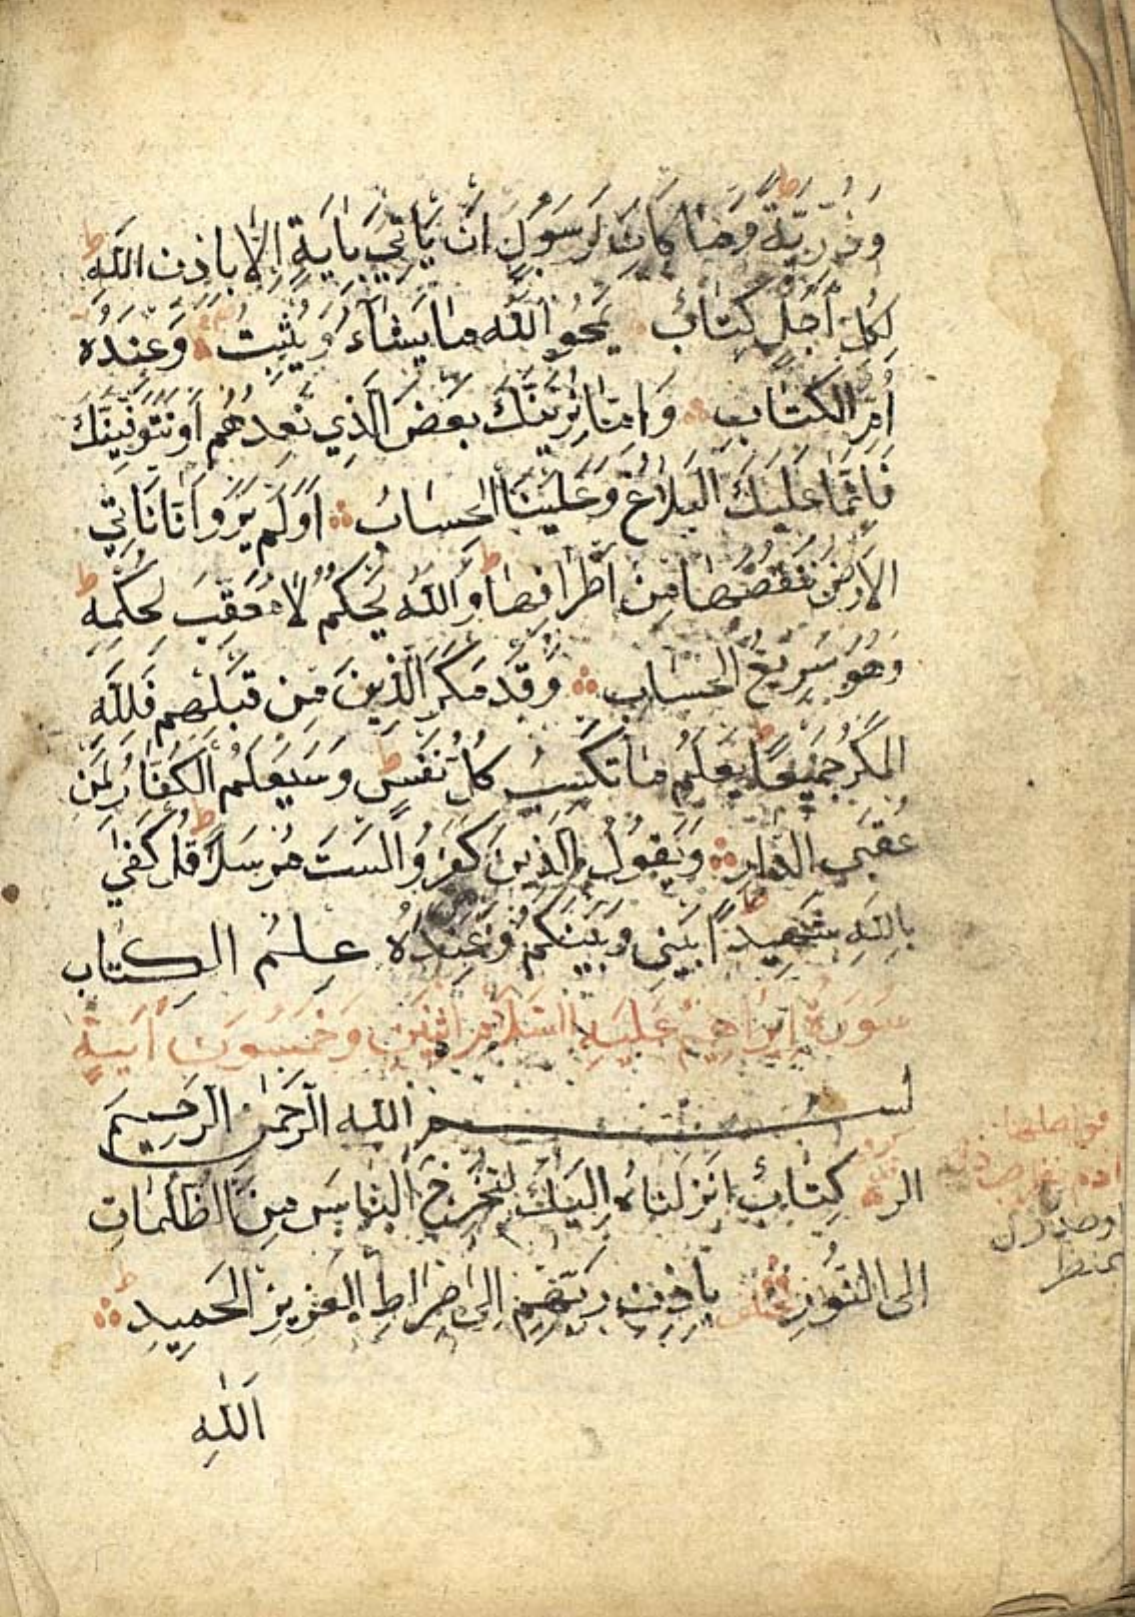 وَذُرِّيَّةً وَمَا كَانَ لِرَسُولٍ اَنْ يَاْتِيَ بِاٰيَةٍ اِلَّا بِاِذْنِ اللّٰهِ ط
لِكُلِّ اَجَلٍ كِتَابٌ يَمْحُو اللّٰهُ مَا يَشَآءُ وَيُثْبِتُ وَعِنْدَهُ
اُمُّ الْكِتَابِ وَاِمَّا نُرِيَنَّكَ بَعْضَ الَّذِي نَعِدُهُمْ اَوْ نَتَوَفَّيَنَّكَ
فَاِنَّمَا عَلَيْكَ الْبَلَاغُ وَعَلَيْنَا الْحِسَابُ اَوَلَمْ يَرَوْا اَنَّا نَاْتِي
الْاَرْضَ نَنْقُصُهَا مِنْ اَطْرَافِهَا ط وَاللّٰهُ يَحْكُمُ لَا مُعَقِّبَ لِحُكْمِهِ ط
وَهُوَ سَرِيعُ الْحِسَابِ وَقَدْ مَكَرَ الَّذِينَ مِنْ قَبْلِهِمْ فَلِلّٰهِ
الْمَكْرُ جَمِيعًا ط يَعْلَمُ مَا تَكْسِبُ كُلُّ نَفْسٍ ط وَسَيَعْلَمُ الْكُفَّارُ لِمَنْ
عُقْبَى الدَّارِ وَيَقُولُ الَّذِينَ كَفَرُوا لَسْتَ مُرْسَلًا ط قُلْ كَفٰى
بِاللّٰهِ شَهِيدًا ط بَيْنِي وَبَيْنَكُمْ وَعِنْدَهُ عِلْمُ الْكِتَابِ
سُورَةُ اِبْرَاهِيمَ عَلَيْهِ السَّلَامُ اثْنَيْنِ وَخَمْسُونَ اٰيَةً
بسم الله الرَّحْمٰنِ الرَّحِيمِ
الر كِتَابٌ اَنْزَلْنَاهُ اِلَيْكَ لِتُخْرِجَ النَّاسَ مِنَ الظُّلُمَاتِ
اِلَى النُّورِ بِاِذْنِ رَبِّهِمْ اِلٰى صِرَاطِ الْعَزِيزِ الْحَمِيدِ ط
اَللّٰهِ
فواصلها